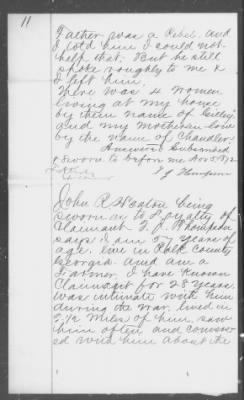 11
Father was a Rebel. and
I told him I could not
help that. But he still
spoke roughly to me &
I left him.
There was 4 women
living at my home
by them name of Gilley
and my Mother in law
by the name of Chandler
Answers Subscribed
& Sworn to before me Nov
F J Thompson
John R. Heaton being
sworn as to Loyalty of
Claimant F. J. Thompson
says I am 54 years of
age, live in Polk County
Georgia. And am a
Farmer. I have Known
Claimant for 28 years.
was intimate with him
during the war. lived in
2 1/2 miles of him, saw
him often and convers
ed with him about the